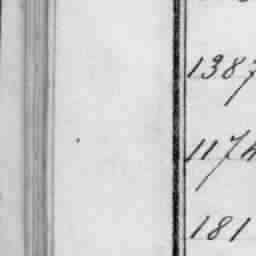 1387
1174
181